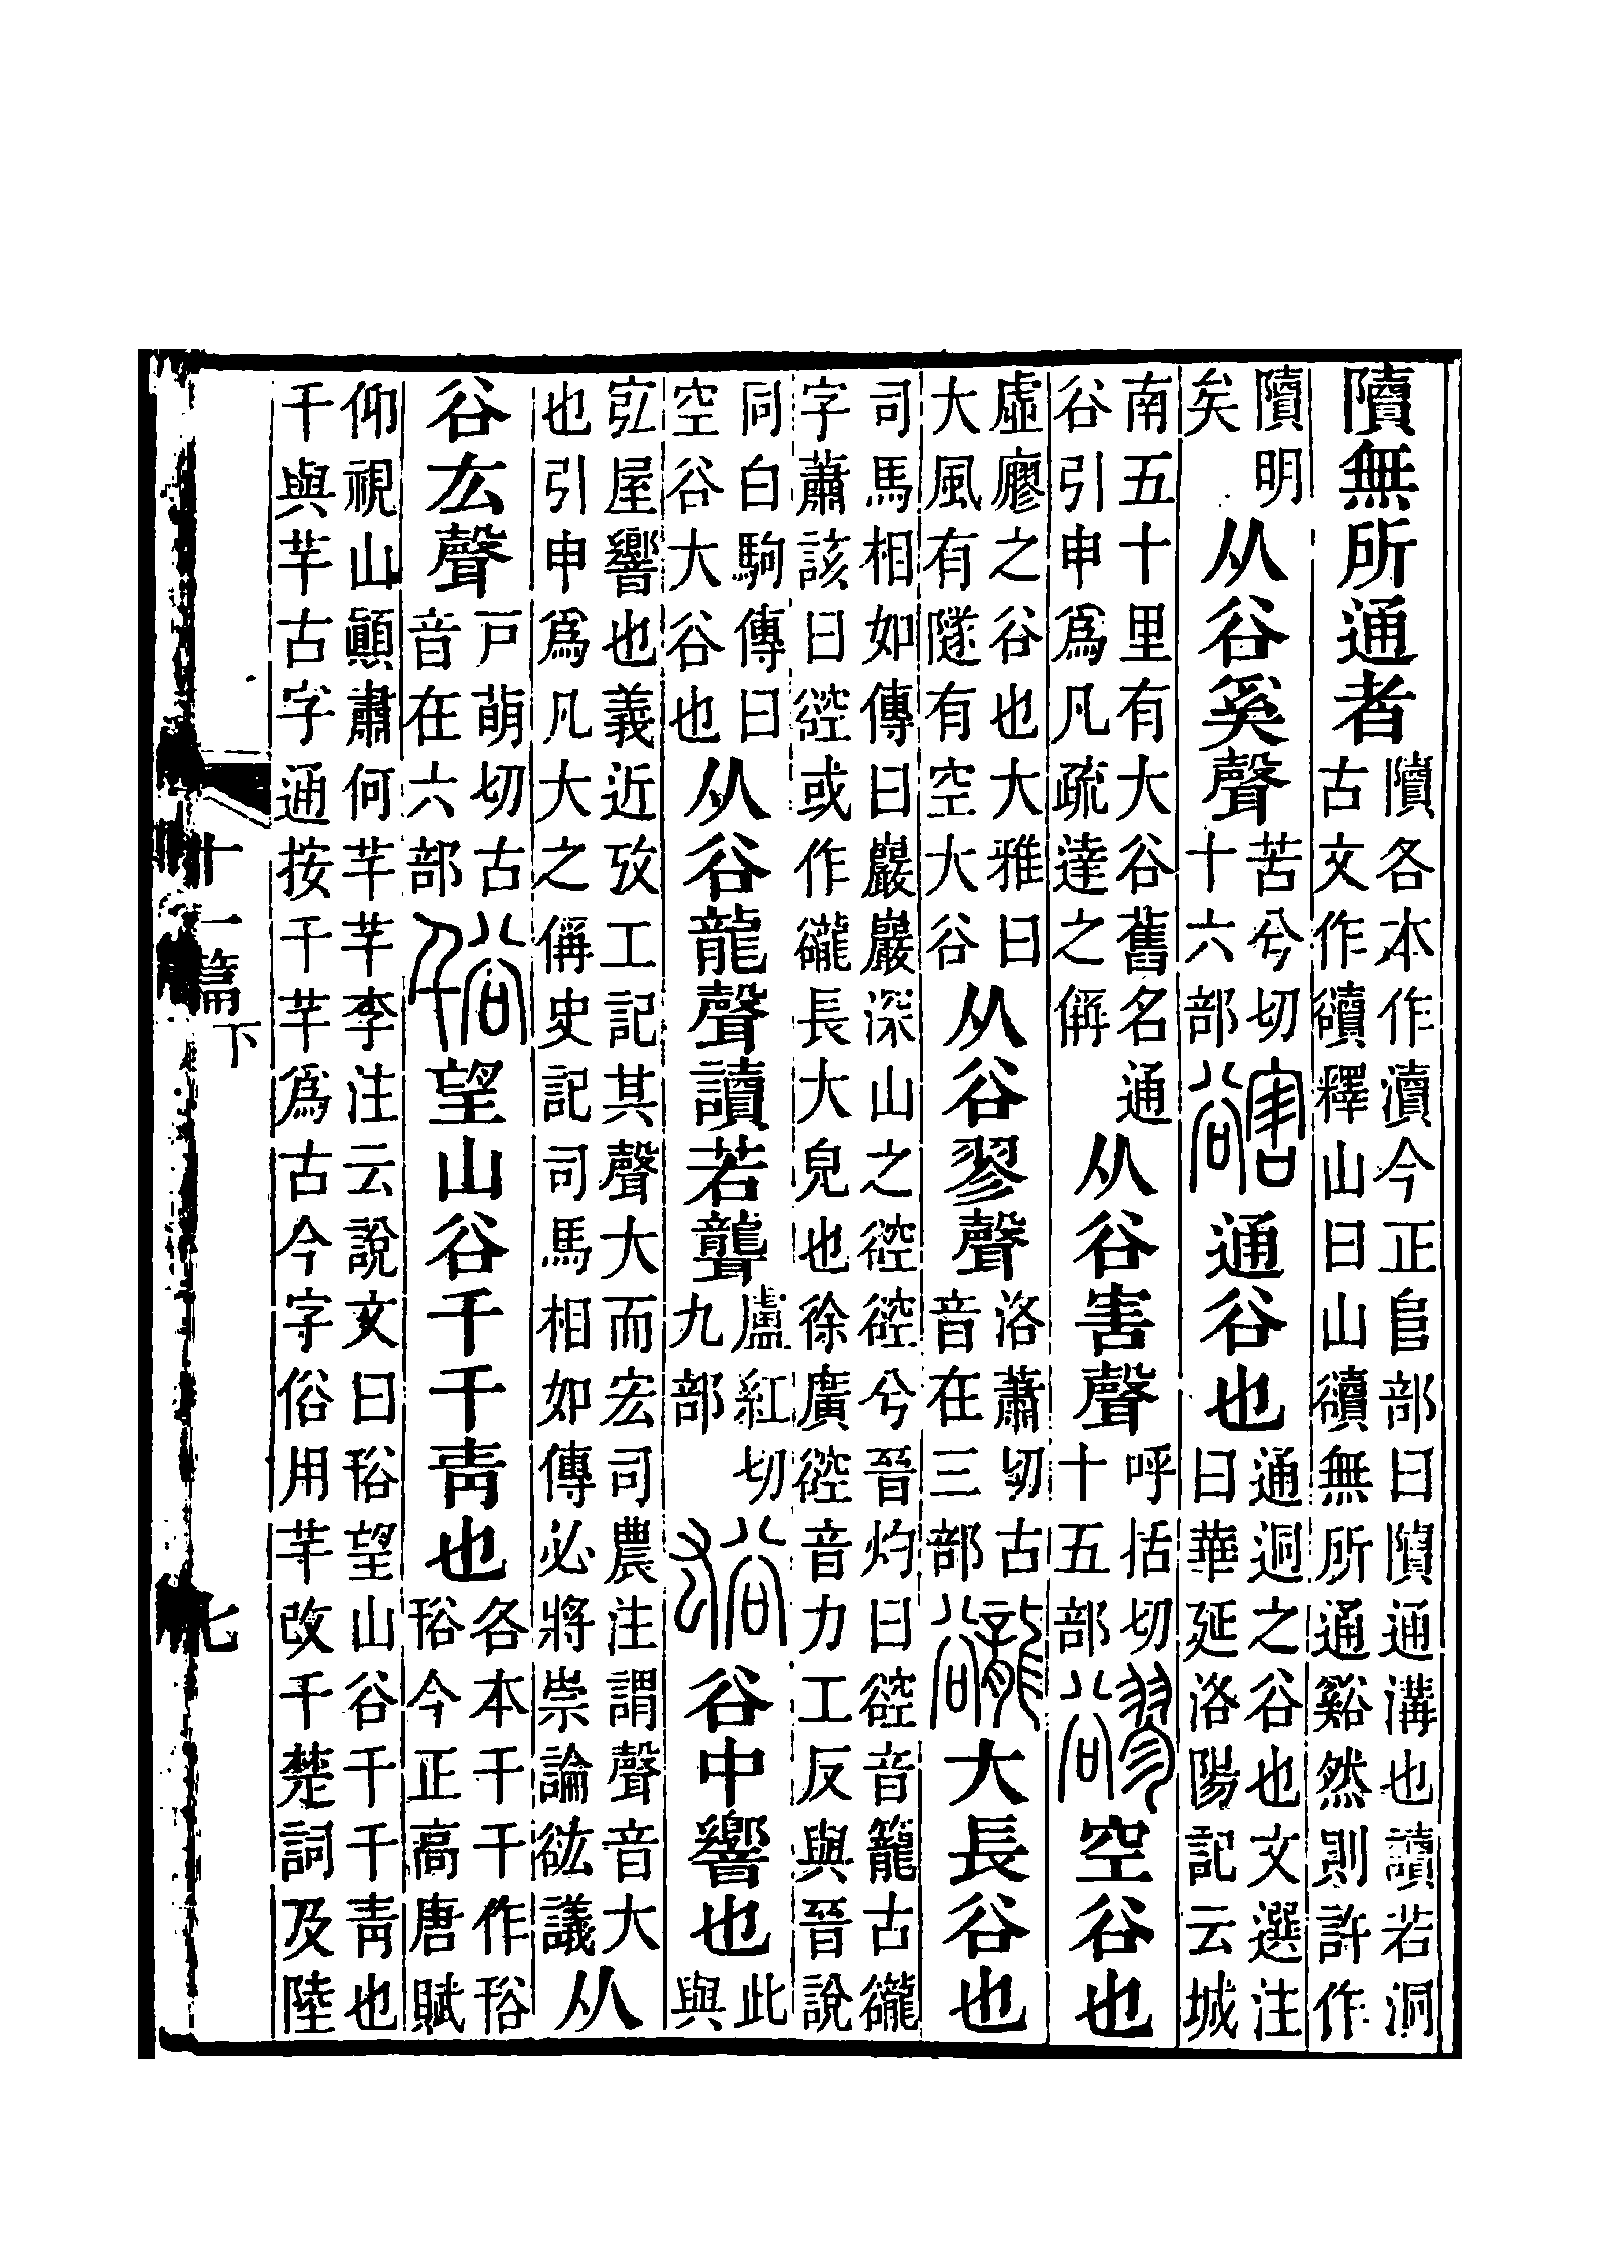 𨽍無所通者
𨽍各本作瀆今正𨸏部曰𨽍通溝也讀若洞
古文作豄釋山曰山豄無所通谿然則許作
𨽍明
矣
从谷奚聲
苦兮切
十六部
豁通谷也
通迵之谷也文選注
曰華延洛陽記云城
南五十里有大谷舊名通
谷引申爲凡疏達之偁
从谷害聲
呼括切
十五部
豂空谷也
虛廫之谷也大雅曰
大風有隧有空大谷
从谷翏聲
洛蕭切古
音在三部
豅大長谷也
司馬相如傳曰巖巖深山之谾谾兮晉灼曰谾音籠古豅
字蕭該曰谾或作豅長大皃也徐廣谾音力工反與晉說
同白駒傳曰
空谷大谷也
从谷龍聲讀若聾
盧紅切
九部
谹谷中響也
此
與
宖屋響也義近攷工記其聲大而宏司農注謂聲音大
也引申爲凡大之偁史記司馬相如傳必將崇論谹議
从
谷厷聲
戶萌切古
音在六部
谸望山谷千千靑也
各本千千作谸
谸今正高唐賦
仰視山顚肅何芊芊李注云說文曰谸望山谷千千靑也
千與芊古字通按千芊爲古今字俗用芊改千楚詞及陸
十一篇下
七